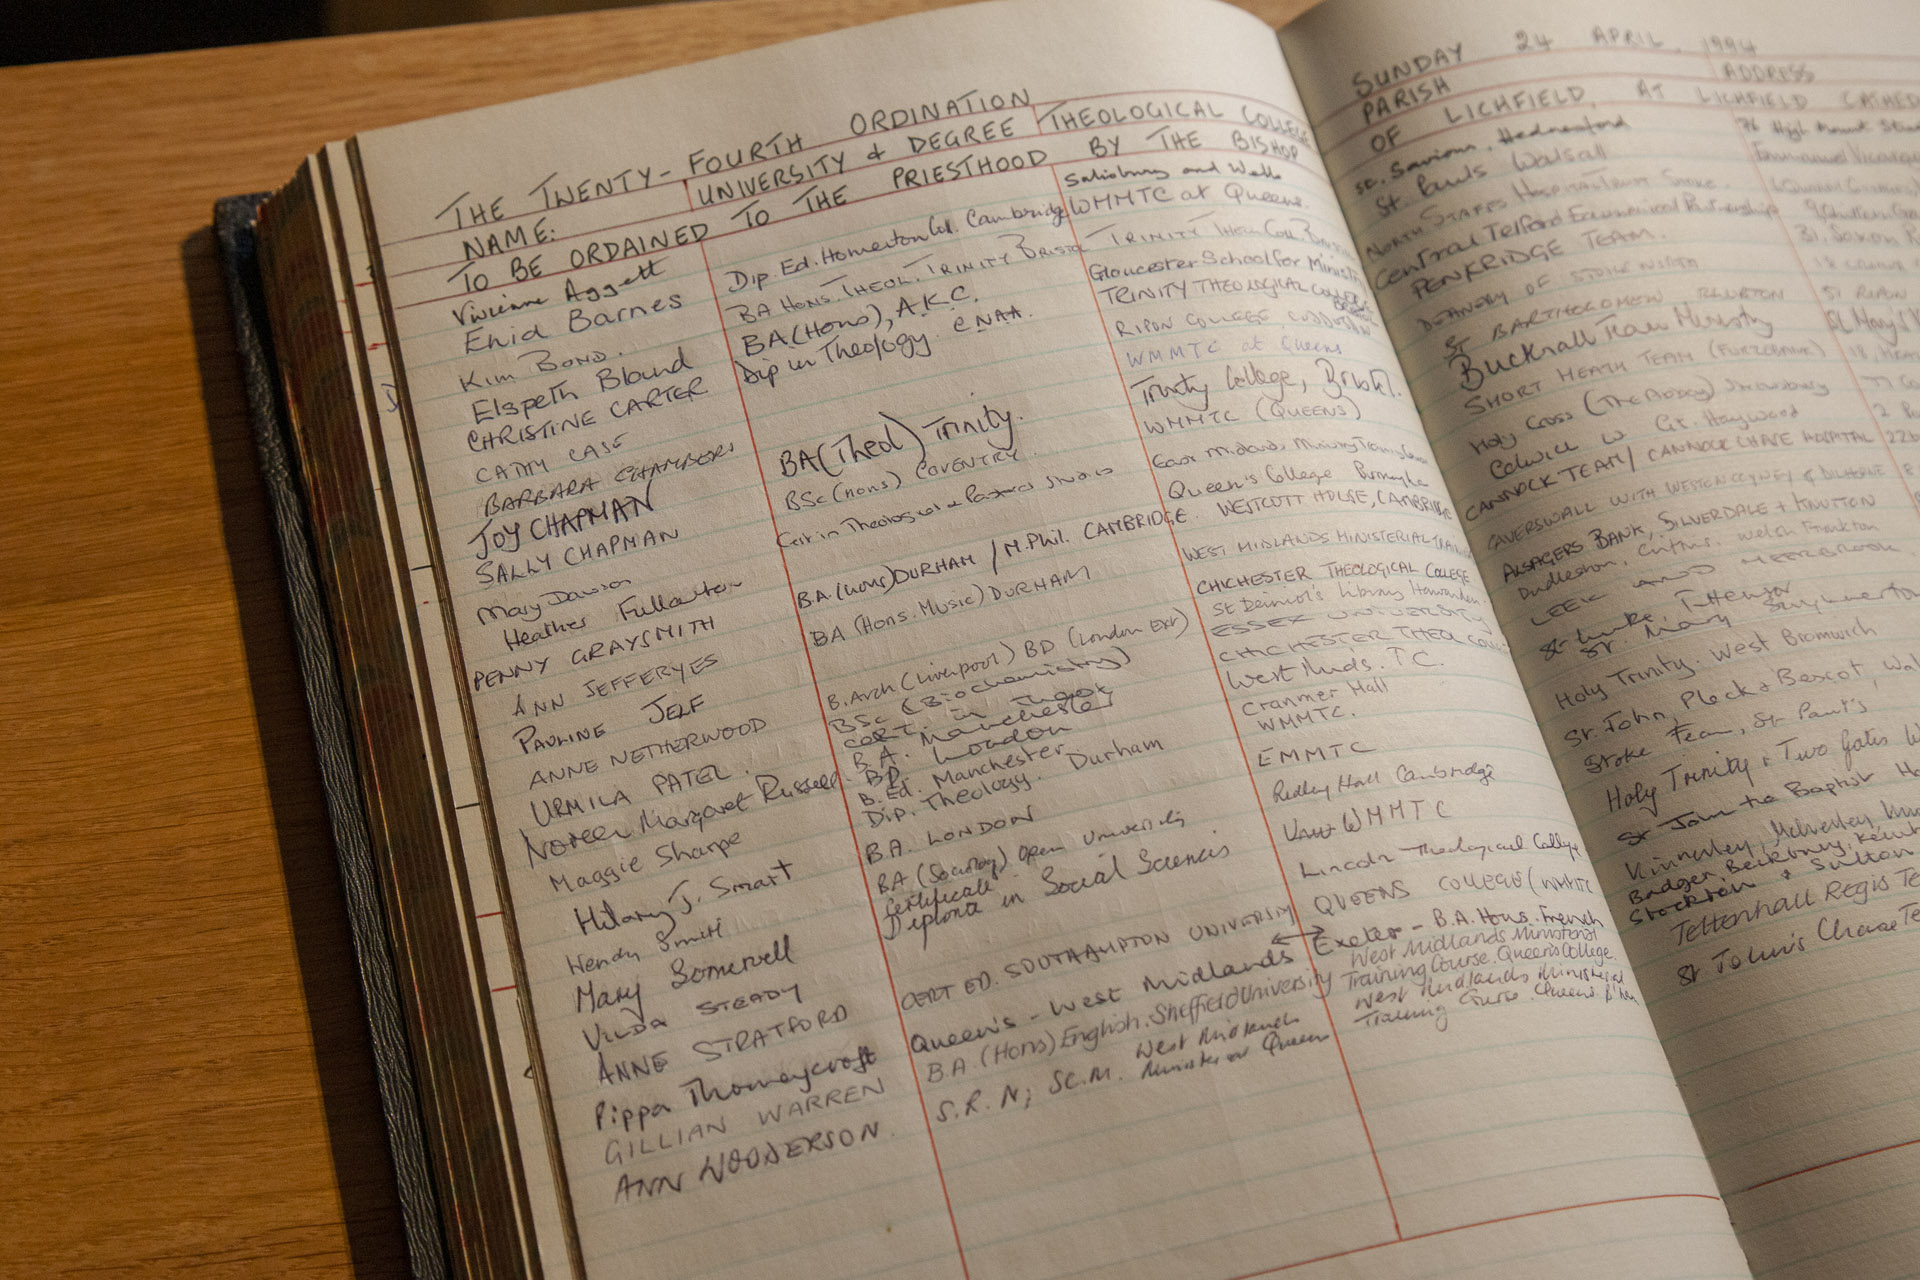 THE TWENTY-FOURTH ORDINATION
SUNDAY 24 APRIL, 1994
NAME: UNIVERSITY & DEGREE THEOLOGICAL COLLEGE
PARISH ADDRESS
TO BE ORDAINED TO THE PRIESTHOOD BY THE BISHOP
OF LICHFIELD, AT LICHFIELD CATHED
Vivienne Aggett
Enid Barnes
Kim Bond.
Elspeth Bland
CHRISTINE CARTER
CATH CASE
BARBARA CHAMBERS
JOY CHAPMAN
SALLY CHAPMAN
Mary Davison
Heather Fullarton
PENNY GRAYSMITH
ANN JEFFERYES
PAULINE JELF
ANNE NETHERWOOD
URMILA PATEL.
Noreen Margaret Russell
Maggie Sharpe
Hilary J. Smart
Wendy Smith
Mary Somervell
VILDA STEADY
ANNE STRATFORD
Pippa Thorneycroft
GILLIAN WARREN
ANN WOODERSON.
Dip. Ed. Homerton Col. Cambridge
BA HONS. THEOL. TRINITY BRISTOL
BA (Hons), A.K.C.
Dip in Theology. CNAA.
BA (Theol) Trinity.
BSc (HONS) COVENTRY.
Cert in Theological & Pastoral Studies
BA (Hons) DURHAM / M.Phil. CAMBRIDGE.
BA (Hons. Music) DURHAM
B. Arch (Liverpool) BD (London Ext)
BSc (Biochemistry)
CERT. in
B.A. Manchester
BD. London
B. Ed. Manchester
Dip. Theology. Durham
B.A. LONDON
BA (Sociology) Open University
Certificate
Diploma in Social Sciences
CERT ED. SOUTHAMPTON UNIVERSITY
Queen's - West Midlands
B.A. (Hons) English. Sheffield University
S.R.N; SC.M. West Midlands
Minister at Queens
Salisbury and Wells
WMMTC at Queens.
TRINITY Theol. Coll.
Gloucester School for Ministry
TRINITY THEOLOGICAL COLLEGE
RIPON COLLEGE, CUDDESDON
WMMTC at Queens
Trinity College, Bristol.
WMMTC (QUEENS)
East Midlands Ministry Training
Queen's College Birmingham
WESTCOTT HOUSE, CAMBRIDGE
WEST MIDLANDS MINISTERIAL TRAINING
CHICHESTER THEOLOGICAL COLLEGE
St Deiniol's Library Hawarden.
ESSEX UNIVERSITY
CHICHESTER THEOL COLL
West Mids. T.C.
Cranmer Hall
WMMTC.
EMMTC
Ridley Hall Cambridge
WMMTC
Lincoln Theological College
QUEENS COLLEGE (WMMTC
Exeter - B.A. Hons. French
West Midlands Ministerial
Training Course. Queen's College.
West Midlands Ministerial
Training Course. Queens
St. Saviour, Hednesford
St. Pauls Walsall
NORTH STAFFS HOSPITAL TRUST STOKE.
Central Telford Ecumenical Partnership
PENKRIDGE TEAM.
DEANERY OF STOKE NORTH
ST BARTHOLOMEW BLURTON
Bucknall Team Ministry
SHORT HEATH TEAM (FURZEBANK)
Holy Cross (The Abbey) Shrewsbury
Colwich w Gt. Haywood
CANNOCK TEAM / CANNOCK CHASE HOSPITAL
CAVERSWALL WITH WESTON COYNEY & DILHORNE
ALSAGERS BANK, SILVERDALE & KNUTTON
Dudleston, Criftins, Welsh Frankton
LEEK AND MEERBROOK
St Luke Tittensor
St. Mary Swynnerton
Holy Trinity. West Bromwich
St. John, Pleck & Bescot,
Stoke Team, St Paul's
Holy Trinity, Two Gates
St John the Baptist
Kinnerley, Melverley
Badger, Beckbury,
Stockton & Sutton
Tettenhall Regis
St John's Chase